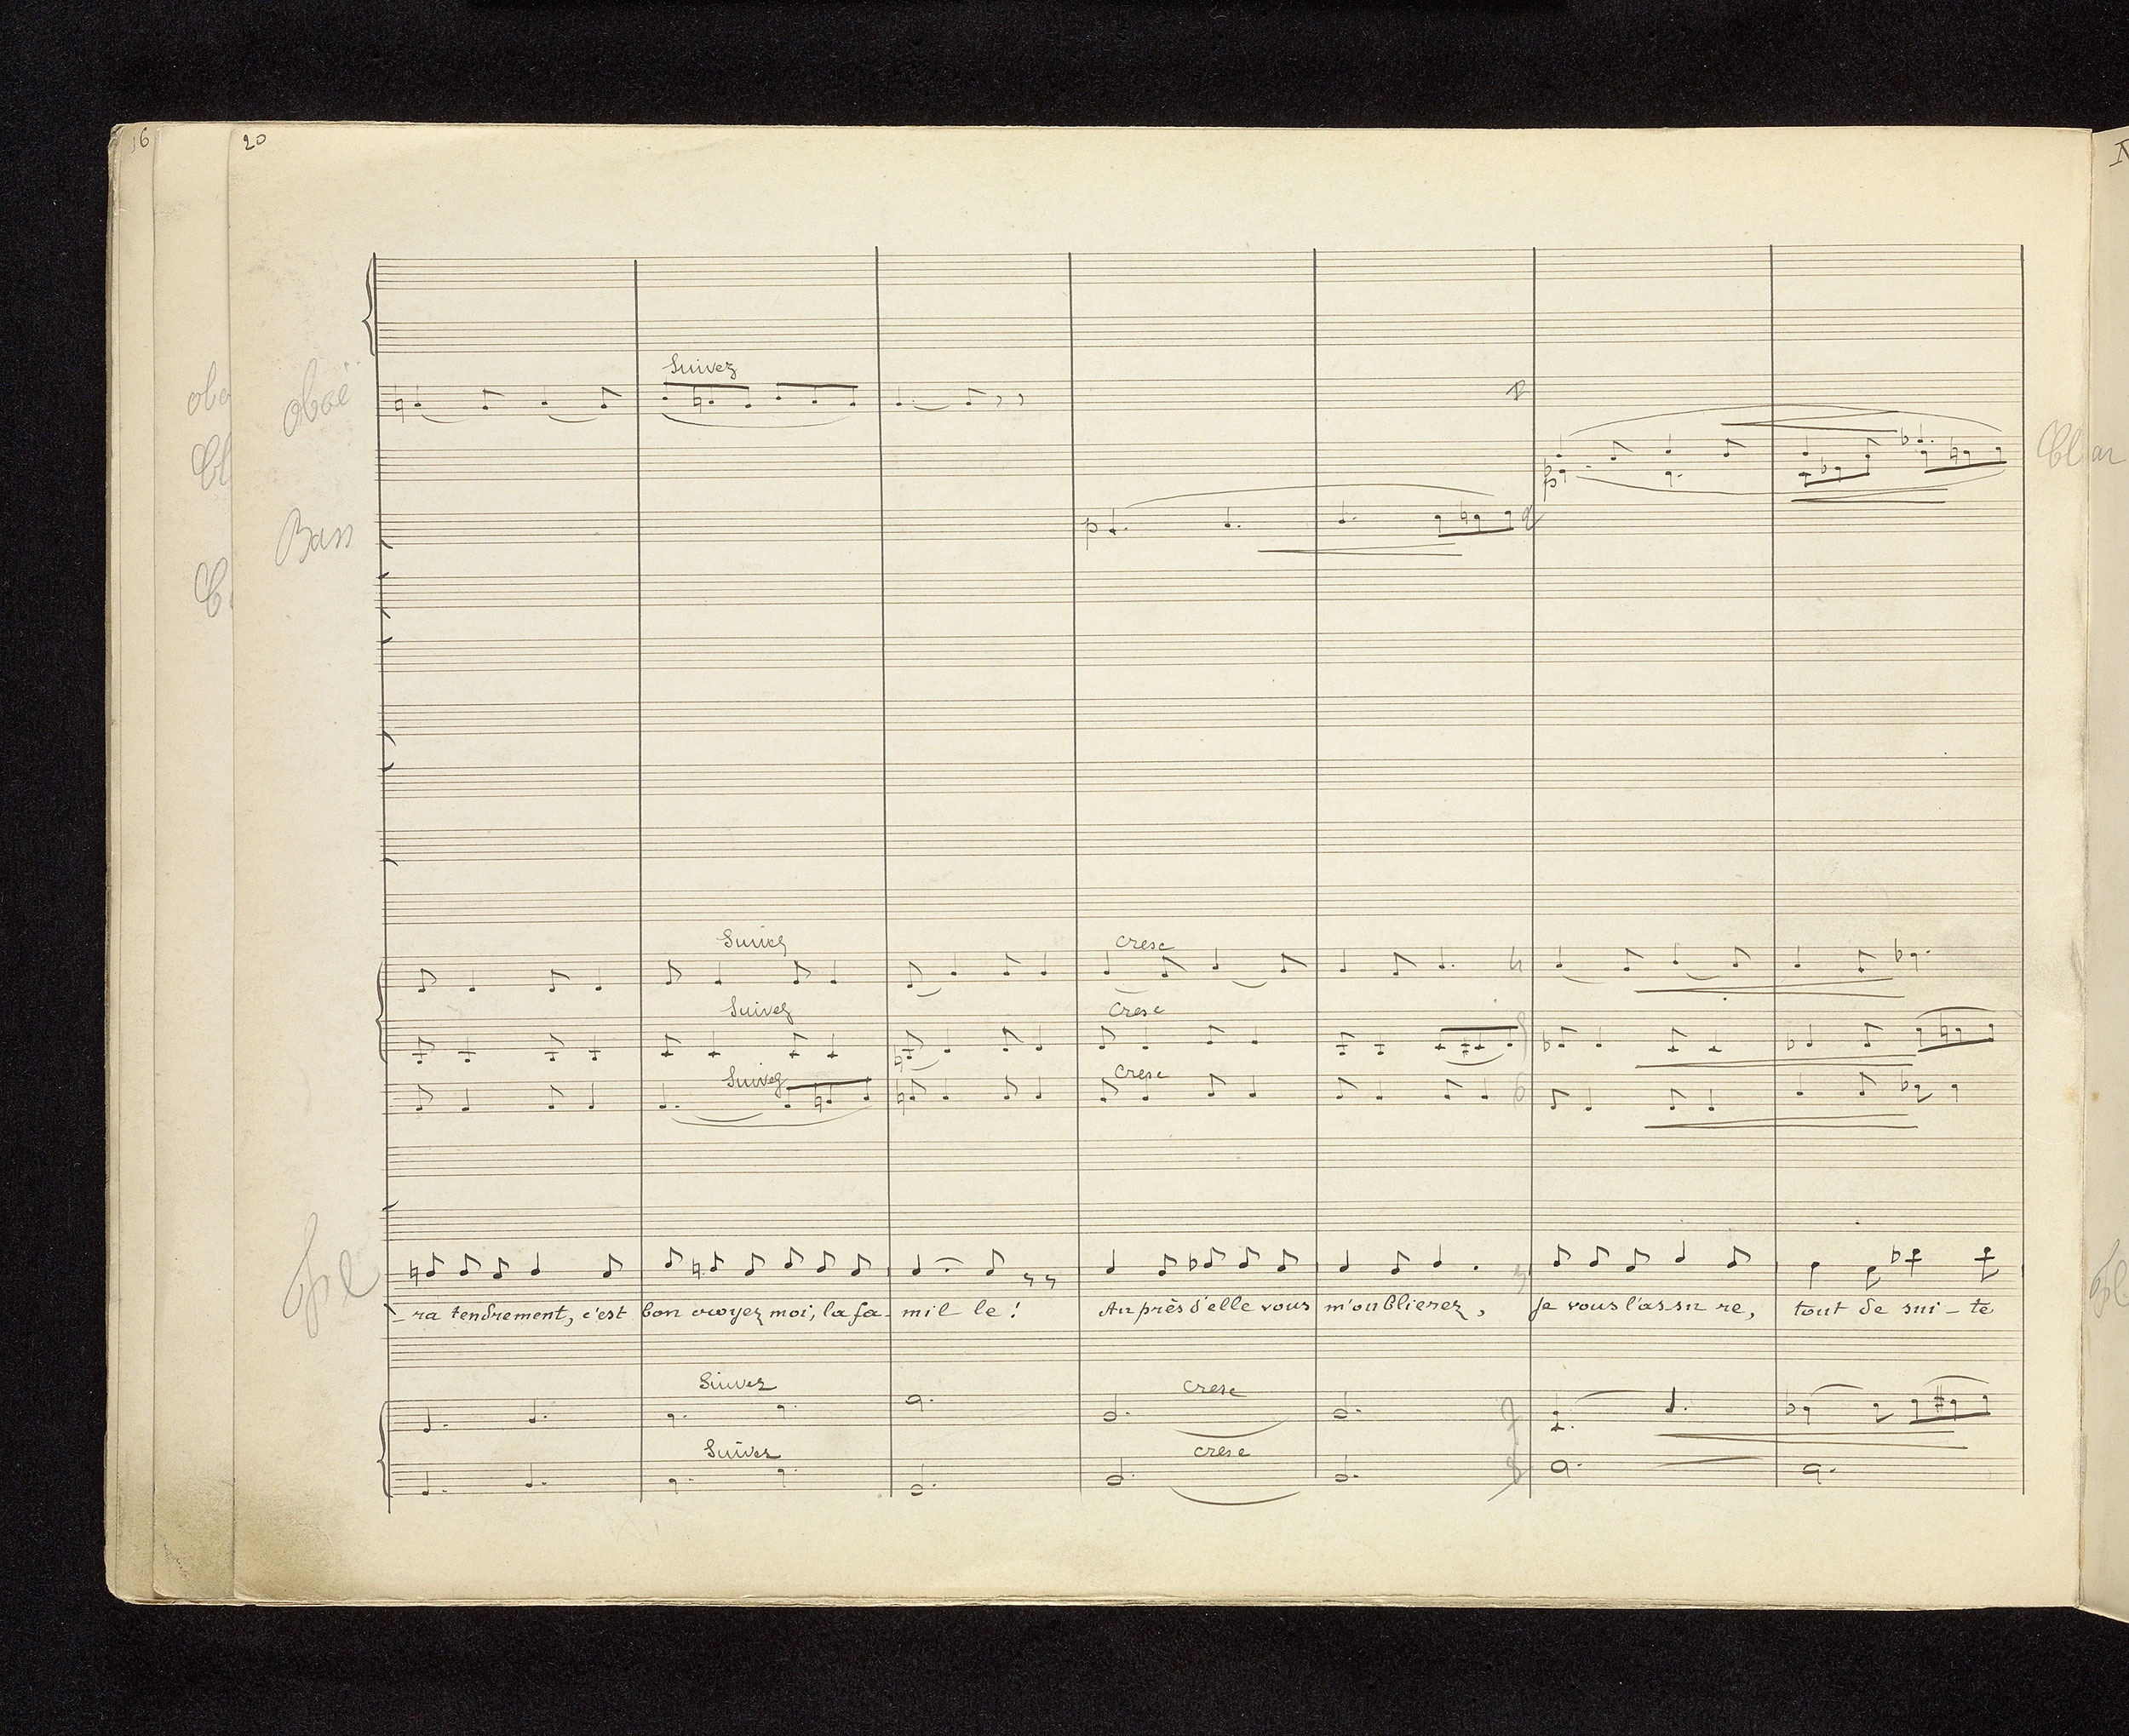 16
20
N
Suivez
oboë
Clar
p
p
Bass
Suivez
cresc
Suivez
cresc
Suivez
cresc
ra tendrement, c'est bon croyez moi, la fa- mil le ! Auprès d'elle vous m'oublierez, Je vous l'assu re, tout de sui - te
Suivez
cresc
Suivez
cresc